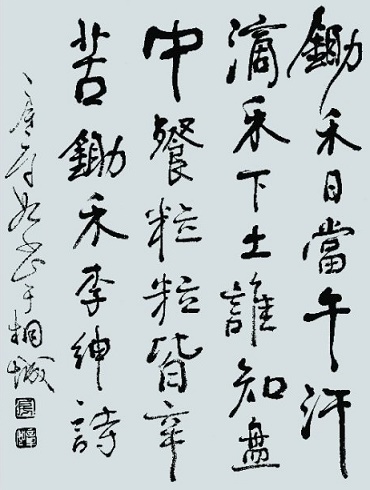 鋤禾日當午汗
滴禾下土誰知盤
中餐粒粒皆辛
苦鋤禾李紳詩
于桐城